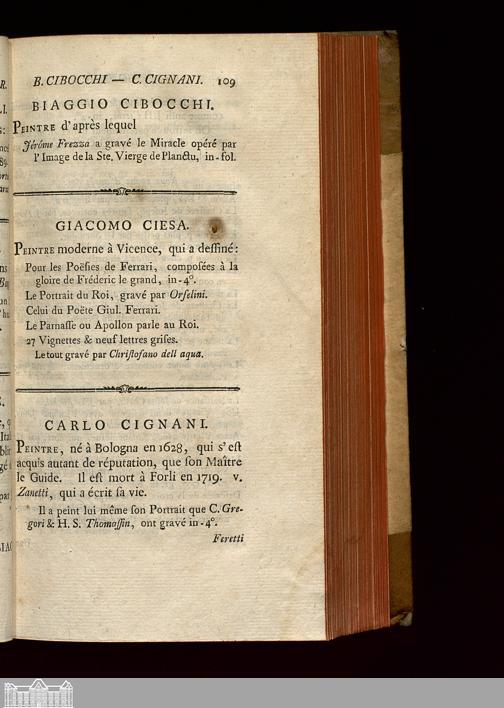 B. CIBOCCHI — C. CIGNANI. 109
BIAGGIO CIBOCCHI.
PEINTRE d'après lequel
Jérôme Frezza a gravé le Miracle opéré par
l'Image de la Ste. Vierge de Planctu, in-fol.
GIACOMO CIESA.
PEINTRE moderne à Vicence, qui a deſſiné:
Pour les Poëſies de Ferrari, compoſées à la
gloire de Fréderic le grand, in-4°.
Le Portrait du Roi, gravé par Orſelini.
Celui du Poëte Giul. Ferrari.
Le Parnaſſe ou Apollon parle au Roi.
27 Vignettes & neuf lettres griſes.
Le tout gravé par Chriſtoſano dell aqua.
CARLO CIGNANI.
PEINTRE, né à Bologna en 1628, qui s'eſt
acquis autant de réputation, que ſon Maître
le Guide. Il eſt mort à Forli en 1719. v.
Zanetti, qui a écrit ſa vie.
Il a peint lui même ſon Portrait que C. Gre-
gori & H. S. Thomaſſin, ont gravé in-4°.
Feretti